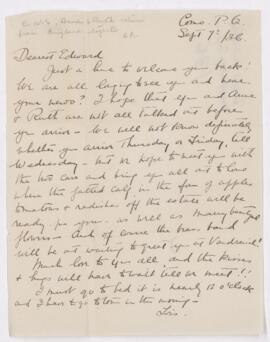 Como. P.Q.
Sept 7th/26
Dearest Edward
Just a line to welcome you back!
We are all longing to see you and hear
your news? I hope that you and Anne
& Ruth are not all talked out before
you arrive. We will not know definitely
whether you arrive Thursday or Friday, till
Wednesday - but we hope to meet you with
the two cars and bring you all out to Como
when the fatted calf in the form of apples
tomatoes & radishes off the estate will be
ready for you - as well as many beautiful
flowers - And of course the brass band
will be at waiting to greet you at Vaudreuil!
Much love to you all and the kisses
& hugs will have to wait till we meet!!
I must go to bed it is nearly 12 o'clock
and I have to go to town in the morning -
Lois.